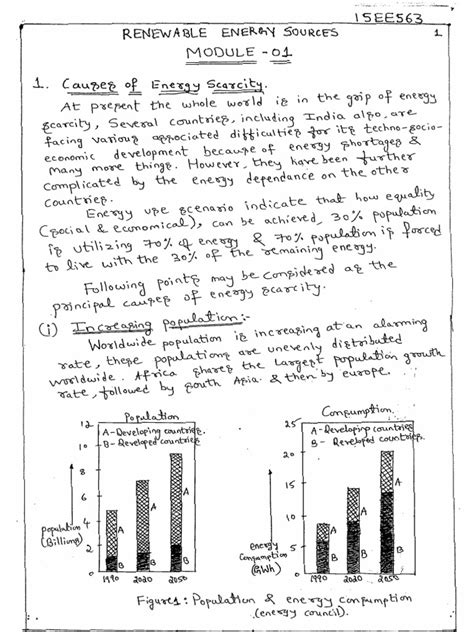 15EE563
RENEWABLE ENERGY SOURCES 1
MODULE -01
1. Causes of Energy Scarcity.
At present the whole world is in the grip of energy
scarcity, Several countries, including India also, are
facing various associated difficulties for its techno-socio-
economic development because of energy shortages &
many more things. However, they have been further
complicated by the energy dependance on the other
countries.
Energy use scenario indicate that how equality
(social & economical), can be achieved, 30% population
is utilizing 70% of energy & 70% population is forced
to live with the 30% of the remaining energy.
Following points may be considered as the
principal causes of energy scarcity.
(i) Increasing population:-
Worldwide population is increasing at an alarming
rate, these populations are unevenly distributed
worldwide. Africa shares the largest population growth
rate, followed by south Asia & then by europe.
Population
A-Developing countries.
B- Developed countries
12
10
8
6
4
2
population
(Billions)
A
B
A
B
A
B
1990 2020 2050
Consumption
A-Developing countries
B- Developed countries.
25
20
15
10
05
00
energy
Consumption
(GWh)
A
B
A
B
A
B
1990 2020 2050
Figure1: Population & energy Consumption
(energy council).